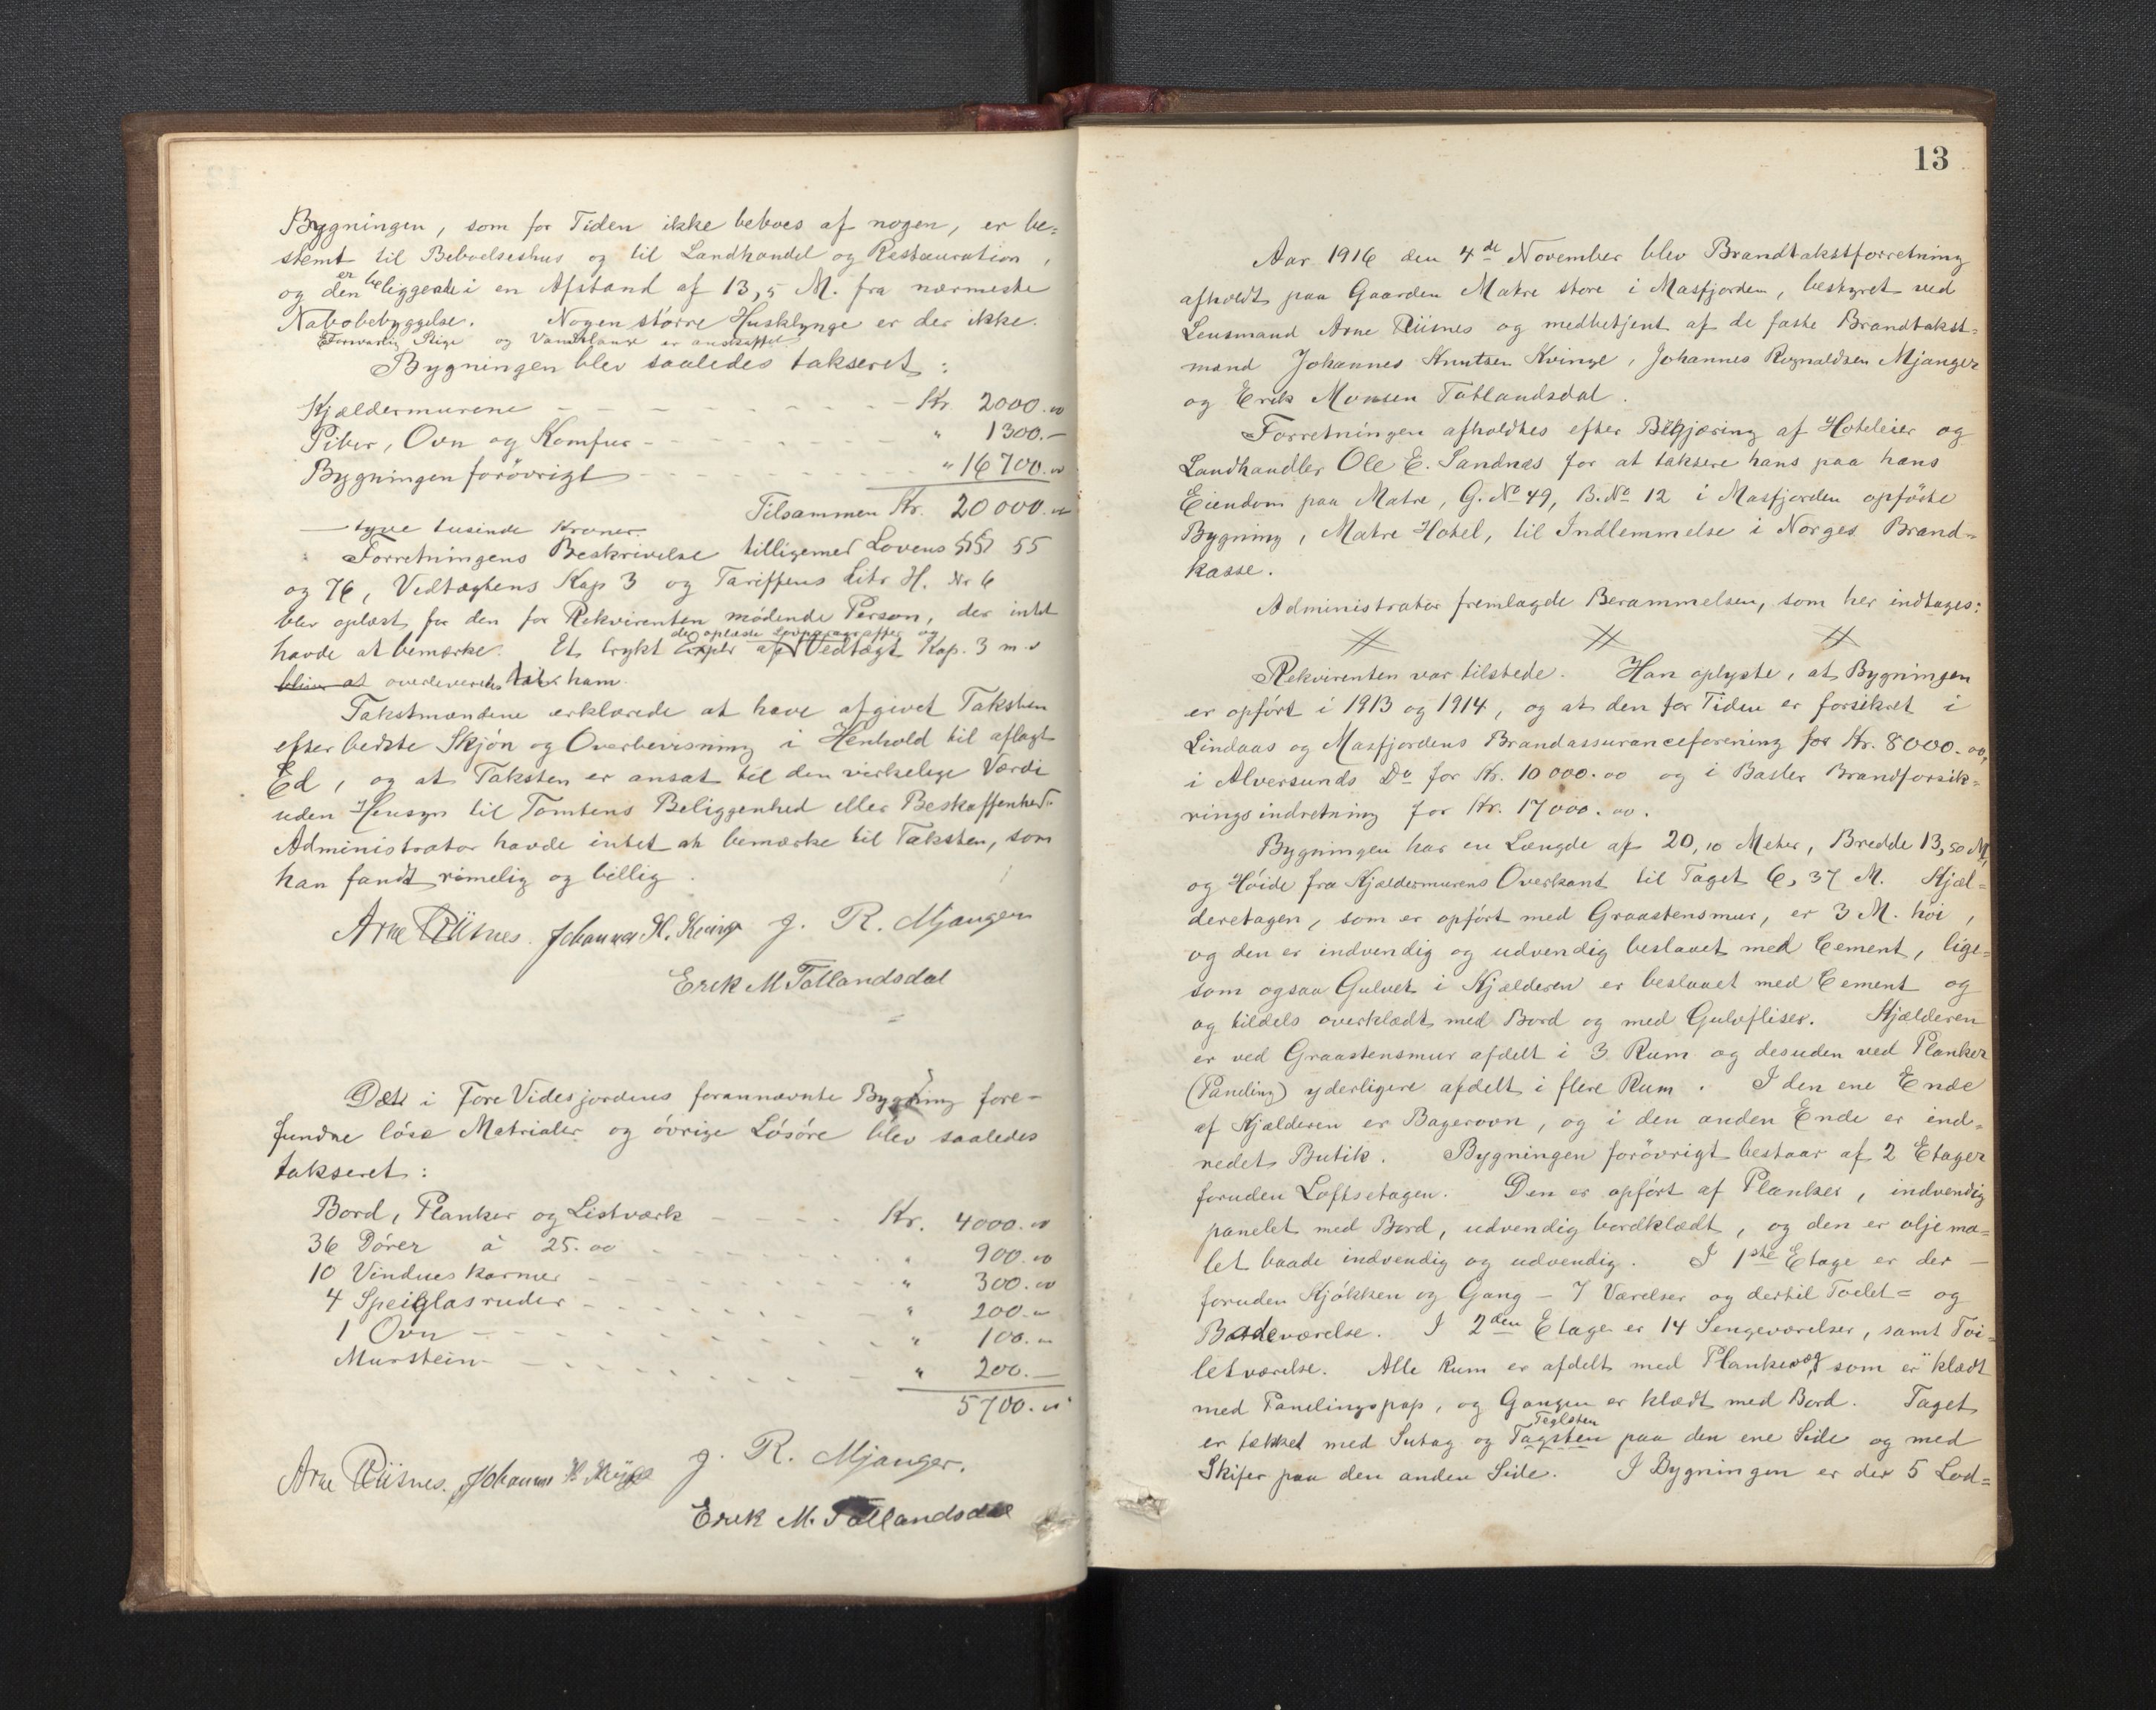 Bygningen, som for Tiden ikke beboes af nogen, er be=
stemt til Beboelseshus og til Landhandel og Restauration,
og den er beliggende i en Afstand af 13,5 M. fra nærmeste
Nabobebyggelse. Nogen större Husklynge er der ikke.
Forsvarlig Stige og Vandslange er anskaffet
Bygningen blev saaledes takseret:
Kjældermurene Kr. 2000.00
Piber, Ovn og Komfur " 1300.–
Bygningen forövrigt " 16700.00
Tilsammen Kr. 20000.00
tyve tusinde Kroner.
Forretningens Beskrivelse tilligemed Lovens §§ 55
og 76, Vedtægtens Kap 3 og Tariffens Litr. H. Nr 6
blev oplæst for den for Rekvirenten mödende Person, der intet
havde at bemærke. Et trykt Explr af de oplæste Lovparagraffer og Vedtægt Kap. 3 m.v
bliver at overleveredes ham.
Takstmændene erklærede at have afgivet Taksten
efter bedste Skjön og Overbevisning i Henhold til aflagt
Ed, og at Taksten er ansat til den virkelige Værdi
uden Hensyn til Tomtens Beliggenhed eller Beskaffenhed.
Administrator havde intet at bemærke til Taksten, som
han fandt rimelig og billig.
Arne Riisnes. Johannes K. Kvinge J. R. Mjanger
Erik M Totlandsdal
Det i Fore Videsjordens forannævnte Bygning fore-
fundne löse Matrialer og övrige Lösöre blev saaledes
takseret:
Bord, Planker og Listværk Kr. 4000.00
36 Dörer à 25.00 " 900.00
10 Vindueskarmer " 300.00
4 Speilglasruder " 200.00
1 Ovn " 100.00
Murstein " 200.–
5700.00
Arne Riisnes. Johannes K Kvinge J. R. Mjanger.
Erik M. Totlandsdal
13
Aar 1916 den 4de November blev Brandtakstforretning
afholdt paa Gaarden Matre store i Masfjorden, bestyret ved
Lensmand Arne Riisnes og medbetjent af de faste Brandtakst=
mænd Johannes Knutsen Kvinge, Johannes Rognaldsen Mjanger
og Erik Monsen Totlandsdal.
Forretningen afholdtes efter Begjæring af Hoteleier og
Landhandler Ole E. Sandnæs for at taksere hans paa hans
Eiendom paa Matre, G. No 49, B. No 12 i Masfjorden opförte
Bygning, Matre Hotel, til Indlemmelse i Norges Brand=
kasse.
Administrator fremlagde Berammelsen, som her indtages:
# # #
Rekvirenten var tilstede. Han oplyste, at Bygningen
er opfört i 1913 og 1914, og at den for Tiden er forsikret i
Lindaas og Masfjordens Brandassuranceforening for Kr. 8000.00,
i Alversunds Do for Kr. 10 000.00 og i Basler Brandforsik=
ringsindretning for Kr. 17000.00.
Bygningen har en Længde af 20,10 Meter, Bredde 13,50 M,
og Höide fra Kjældermurens Overkant til Taget 6,37 M. Kjæl=
deretagen, som er opfört med Graastensmur, er 3 M. höi,
og den er indvendig og udvendig beslaaet med Cement, lige=
som ogsaa Gulvet i Kjælderen er beslaaet med Cement og
og tildels overklædt med Bord og med Gulvfliser. Kjælderen
er ved Graastensmur afdelt i 3 Rum og desuden ved Planker
(Paneling) yderligere afdelt i flere Rum. I den ene Ende
af Kjælderen er Bagerovn, og i den anden Ende er ind=
redet Butik. Bygningen forövrigt bestaar af 2 Etager
foruden Loftsetagen. Den er opfört af Planker, indvendig
panelet med Bord, udvendig bordklædt, og den er oljema=
let baade indvendig og udvendig. I 1ste Etage er der –
foruden Kjökken og Gang – 7 Værelser og dertil Toelet= og
Badeværelse. I 2den Etage er 14 Sengeværelser, samt Toi=
letværelse. Alle Rum er afdelt med Plankevæg, som er klædt
med Panelingspap, og Gangen er klædt med Bord. Taget
er tækket med Sutag og Tagsten Teglsten paa den ene Side og med
Skifer paa den anden Side. I Bygningen er der 5 Lod=